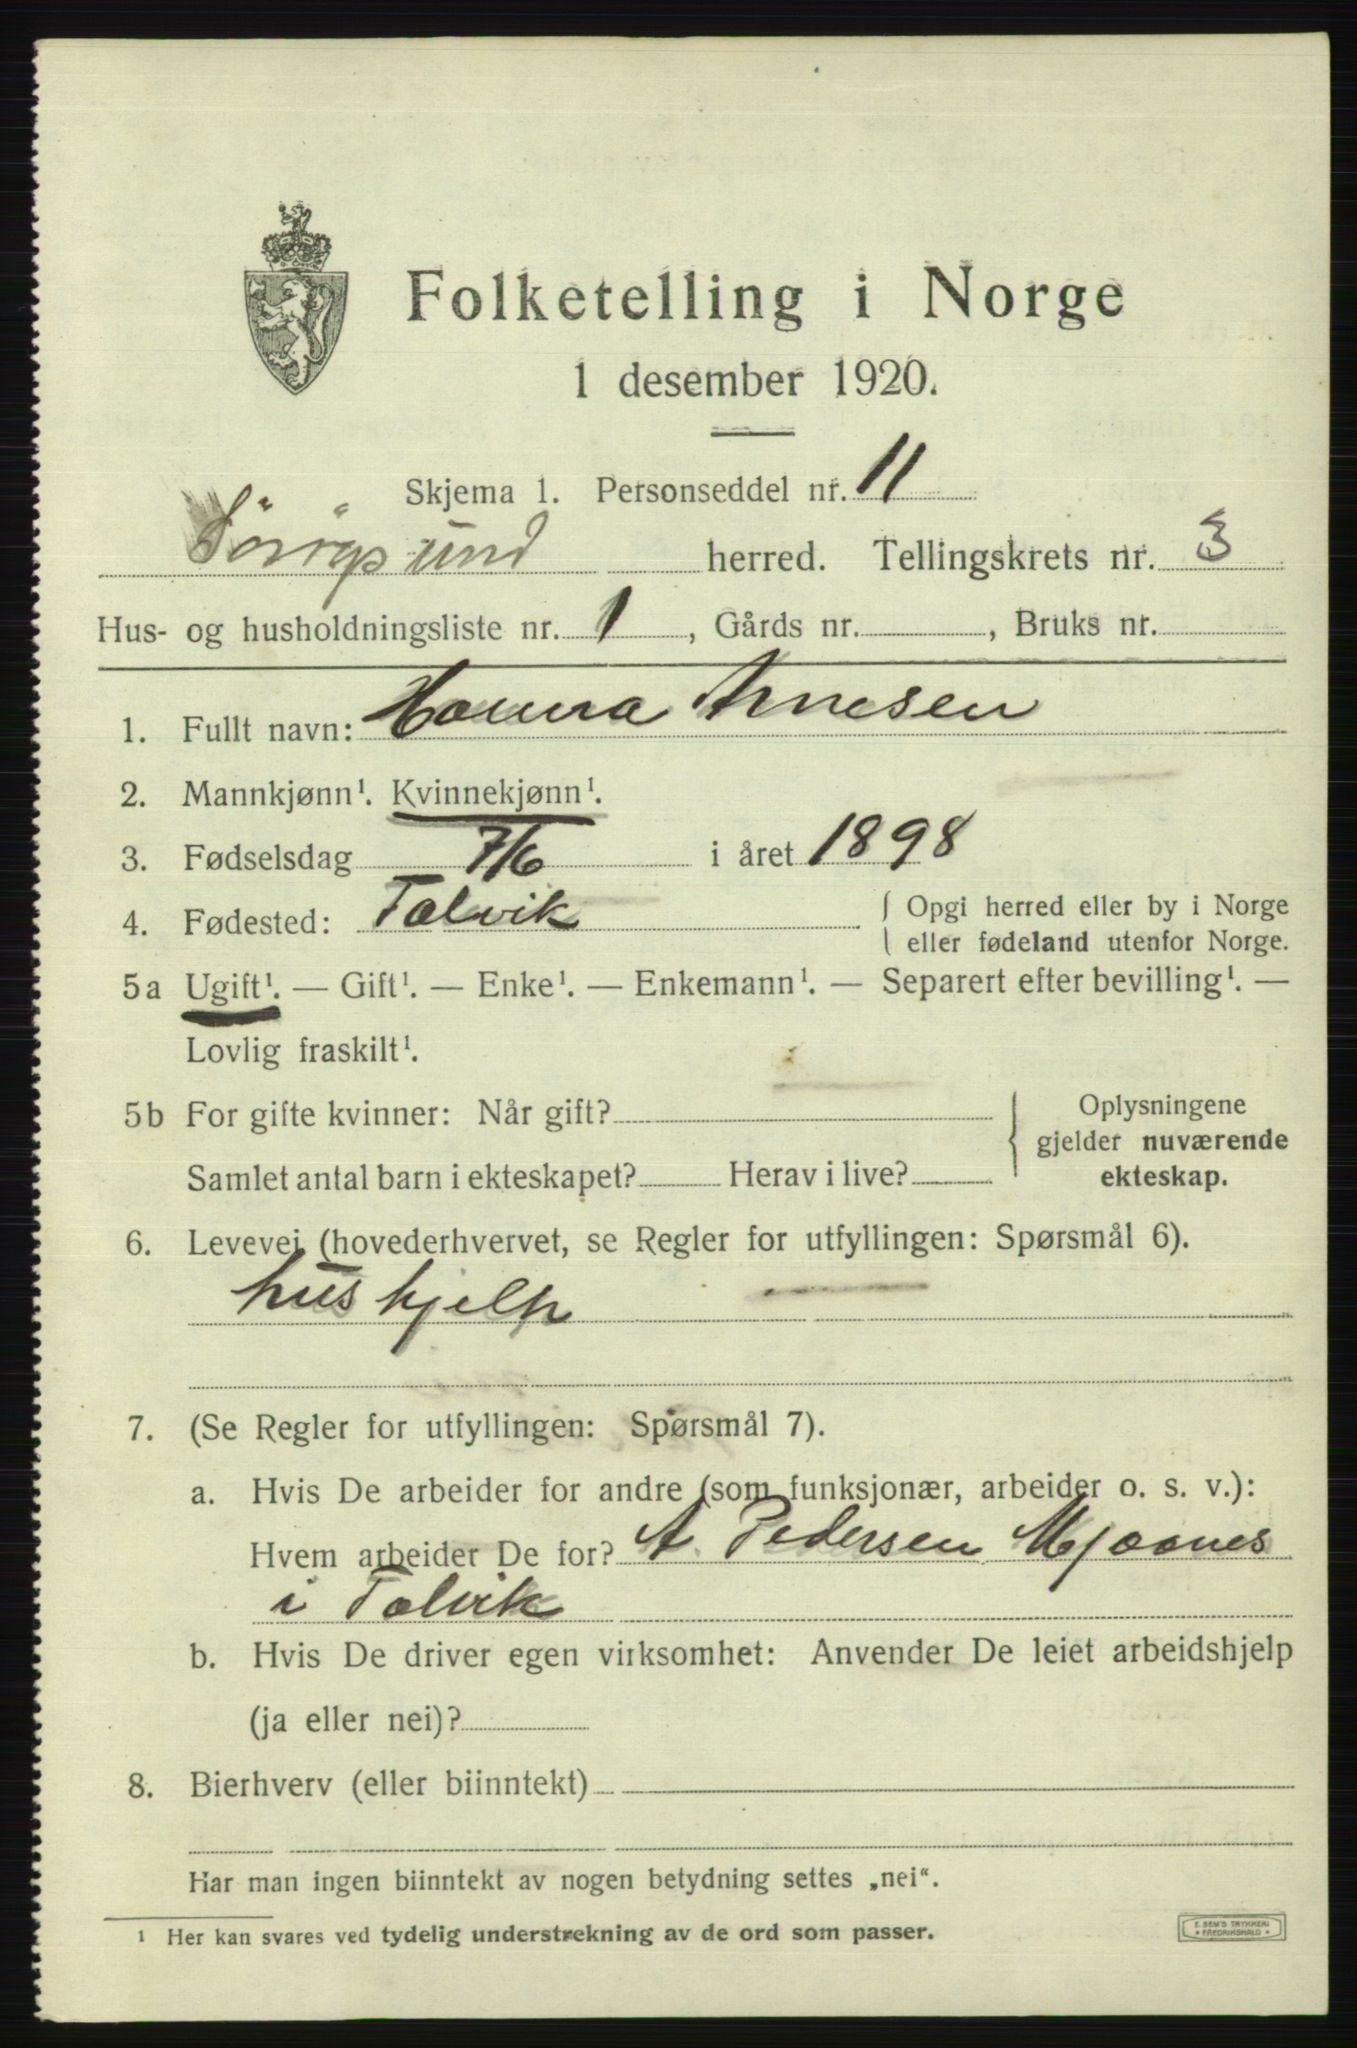 Folketelling i Norge
1 desember 1920.
Skjema 1. Personseddel nr. 11
Sörøysund herred. Tellingskrets nr. 3
Hus- og husholdningsliste nr. 1, Gårds nr. , Bruks nr.
1. Fullt navn: Hanna Arnesen
2. Mannkjønn¹. Kvinnekjønn¹.
3. Fødselsdag 7/6 i året 1898
4. Fødested: Talvik { Opgi herred eller by i Norge
eller fødeland utenfor Norge.
5a Ugift¹. — Gift¹. — Enke¹. — Enkemann¹. — Separert efter bevilling¹. —
Lovlig fraskilt¹.
5b For gifte kvinner: Når gift? Oplysningene
gjelder nuværende
Samlet antal barn i ekteskapet? Herav i live? ekteskap.
6. Levevei (hovederhvervet, se Regler for utfyllingen: Spørsmål 6).
hushjelp
7. (Se Regler for utfyllingen: Spørsmål 7).
a. Hvis De arbeider for andre (som funksjonær, arbeider o. s. v.):
Hvem arbeider De for? A. Pedersen Mjaanes
i Talvik
b. Hvis De driver egen virksomhet: Anvender De leiet arbeidshjelp
(ja eller nei)?
8. Bierhverv (eller biinntekt)
Har man ingen biinntekt av nogen betydning settes „nei“.
¹ Her kan svares ved tydelig understrekning av de ord som passer.
E. SEM'S TRYKKERI
FREDRIKSHALD